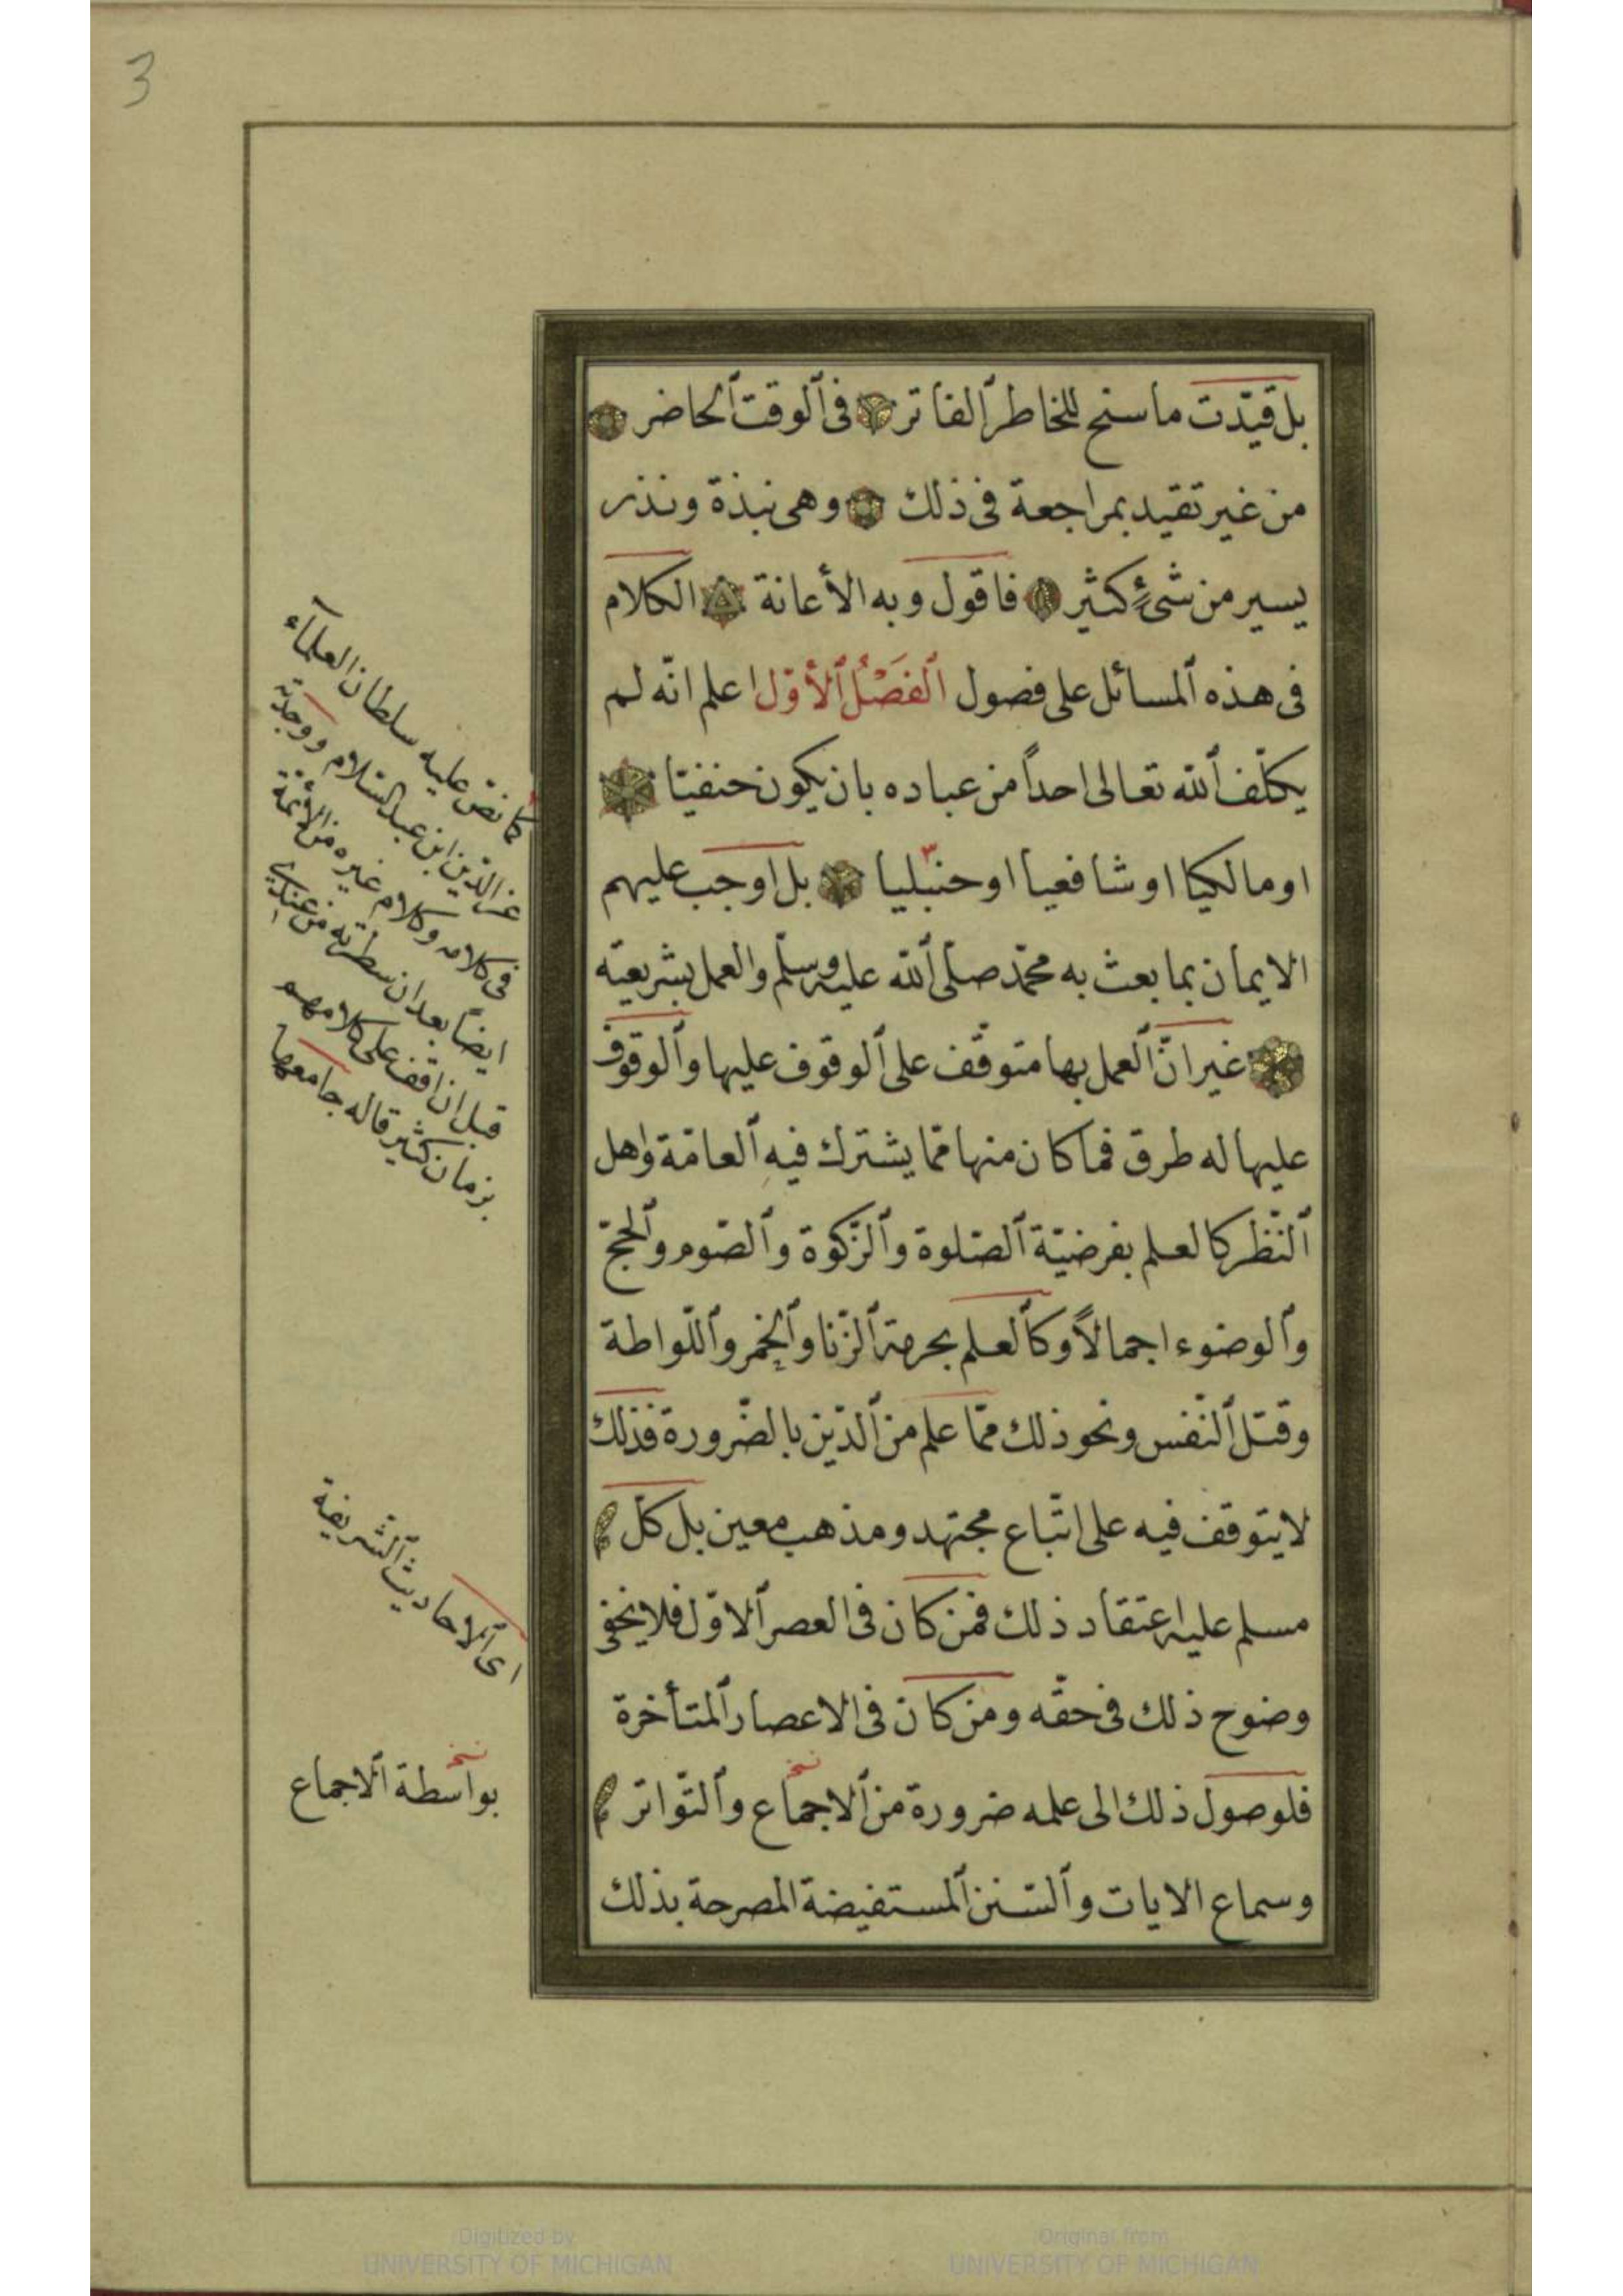 3
بل قيّدت ما سنح للخاطر ٱلفاتر فى ٱلوقت ٱلحاضر
من غير تقيد بمراجعة فى ذلك وهى نبذة ونذر
يسير من شئ كثير فاقول وبه الأعانة الكلام
فى هذه ٱلمسائل على فصول ٱلفَصْلُ ٱلأوّل اعلم انّه لم
يكلّف ٱلله تعالى احداً من عباده بان يكون حنفيّا
او مالكيا او شافعيا او حنبليا ٣ بل اوجب عليهم
الايمان بما بعث به محمّد صلّى ٱلله عليه وسلّم والعمل بشريعته
غير انّ ٱلعمل بها متوقّف على ٱلوقوف عليها وٱلوقوف
عليها له طرق فما كان منها ممّا يشترك فيه ٱلعامّة واهل
ٱلنّظر كالعلم بفرضيّة ٱلصّلوة وٱلزّكوة وٱلصّوم وٱلحجّ
وٱلوضوء اجمالاً وكٱلعلم بحرمة ٱلزّنا وٱلخمر وٱللّواطة
وقتل ٱلنّفس ونحو ذلك ممّا علم من ٱلدّين بالضّرورة فذلك
لا يتوقف فيه على اتّباع مجتهد ومذهب معين بل كلّ
مسلم عليه اعتقاد ذلك فمن كان فى العصر ٱلاوّل فلا يخفى
وضوح ذلك فى حقّه ومن كان فى الاعصار ٱلمتأخرة
فلوصول ذلك الى علمه ضرورة من ٱلاجماع نخ وٱلتّواتر
وسماع الايات وٱلسّنن ٱلمستفيضة المصرحة بذلك
كما نصّ عليه سلطان العلمآء
عز الدّين ابن عبد السّلام ووجدته
فى كلامه وكلام غيره من الأئمّة
ايضاً بعد ان سطرته من عندى
قبل ان اقف على كلامهم
بزمان كثير قاله جامعها
اى ٱلاحاديث ٱلشّريفة
نخ
بواسطة ٱلاجماع
Digitized by
UNIVERSITY OF MICHIGAN
Original from
UNIVERSITY OF MICHIGAN